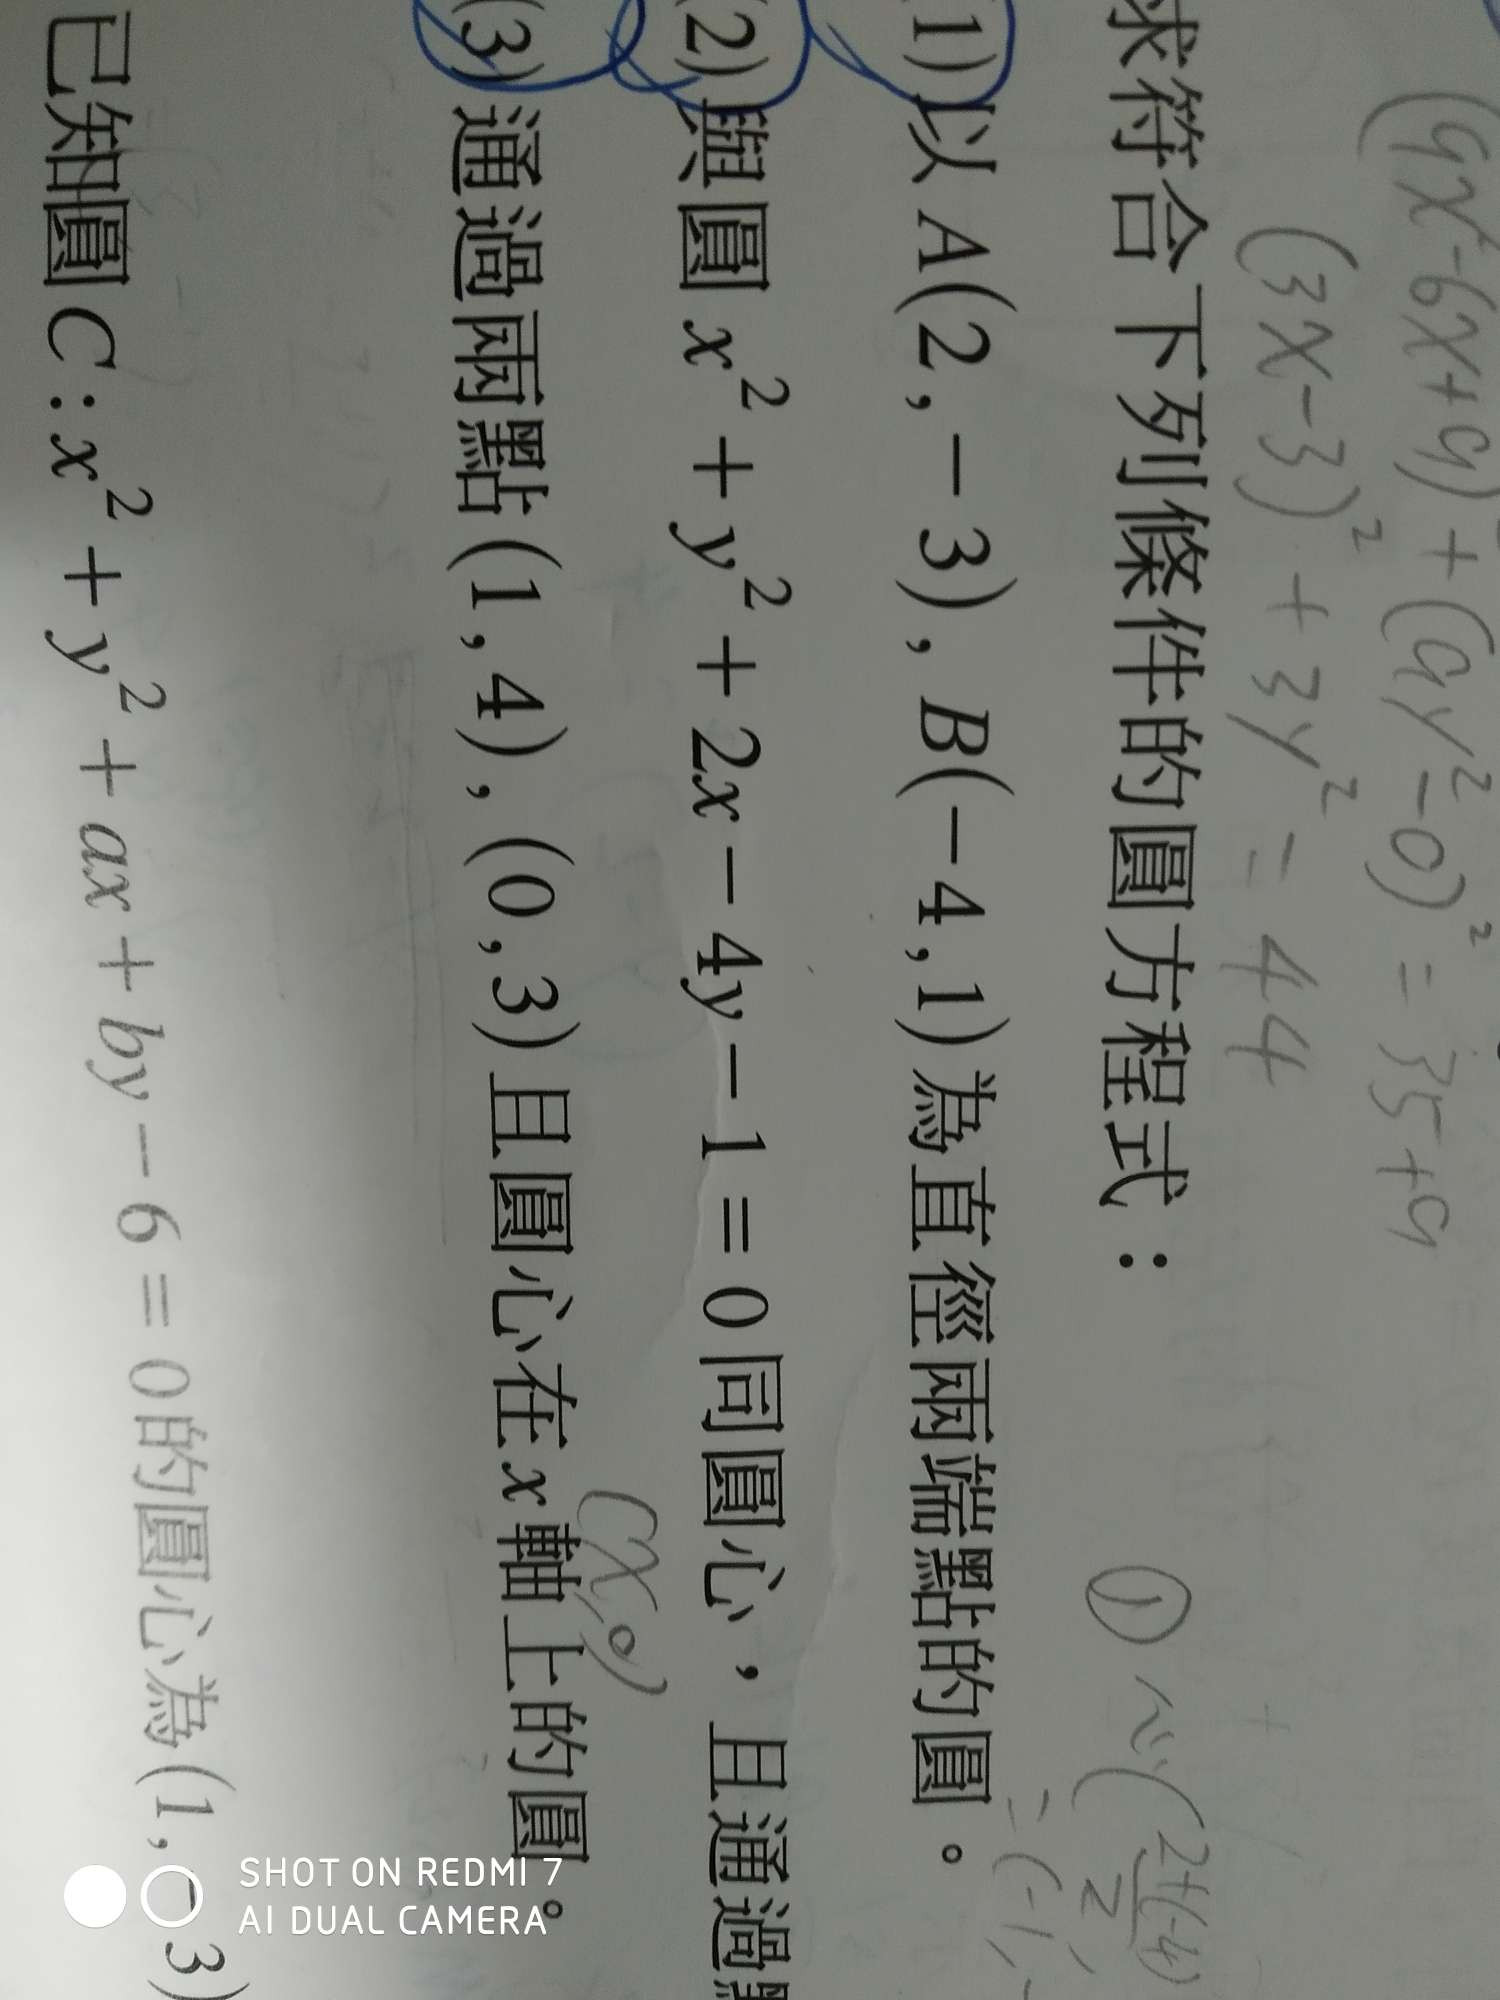 (9x²-6x+9)+(9y²-0)² = 35+9
(3x-3)²+3y² = 44
求符合下列條件的圓方程式：
① (2+(-4)
2
(1)以 A(2,-3), B(-4,1)為直徑兩端點的圓。
=(-1,-
(2)與圓 x²+y²+2x-4y-1=0同圓心，且通過
(x,0)
(3)通過兩點(1,4),(0,3)且圓心在x軸上的圓。
已知圓C:x²+y²+ax+by-6=0的圓心為(1,-3)
SHOT ON REDMI 7
AI DUAL CAMERA